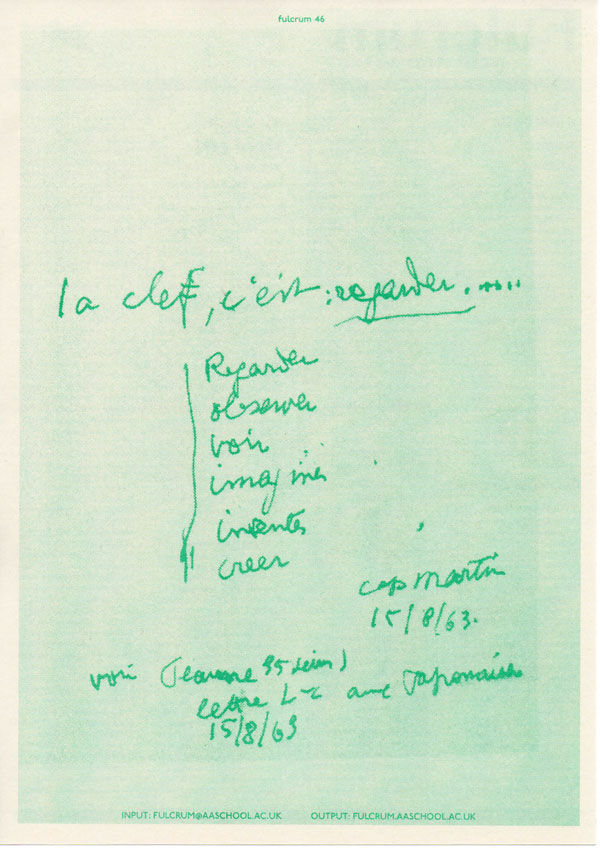 fulcrum 46
la clef, c'est : regarder.....
Regarder
observer
voir
imaginer
inventer
creer
cap martin
15/8/63.
voir (Jeanne 95
lettre L-C aux Japonaises
15/8/63
INPUT: FULCRUM@AASCHOOL.AC.UK OUTPUT: FULCRUM.AASCHOOL.AC.UK